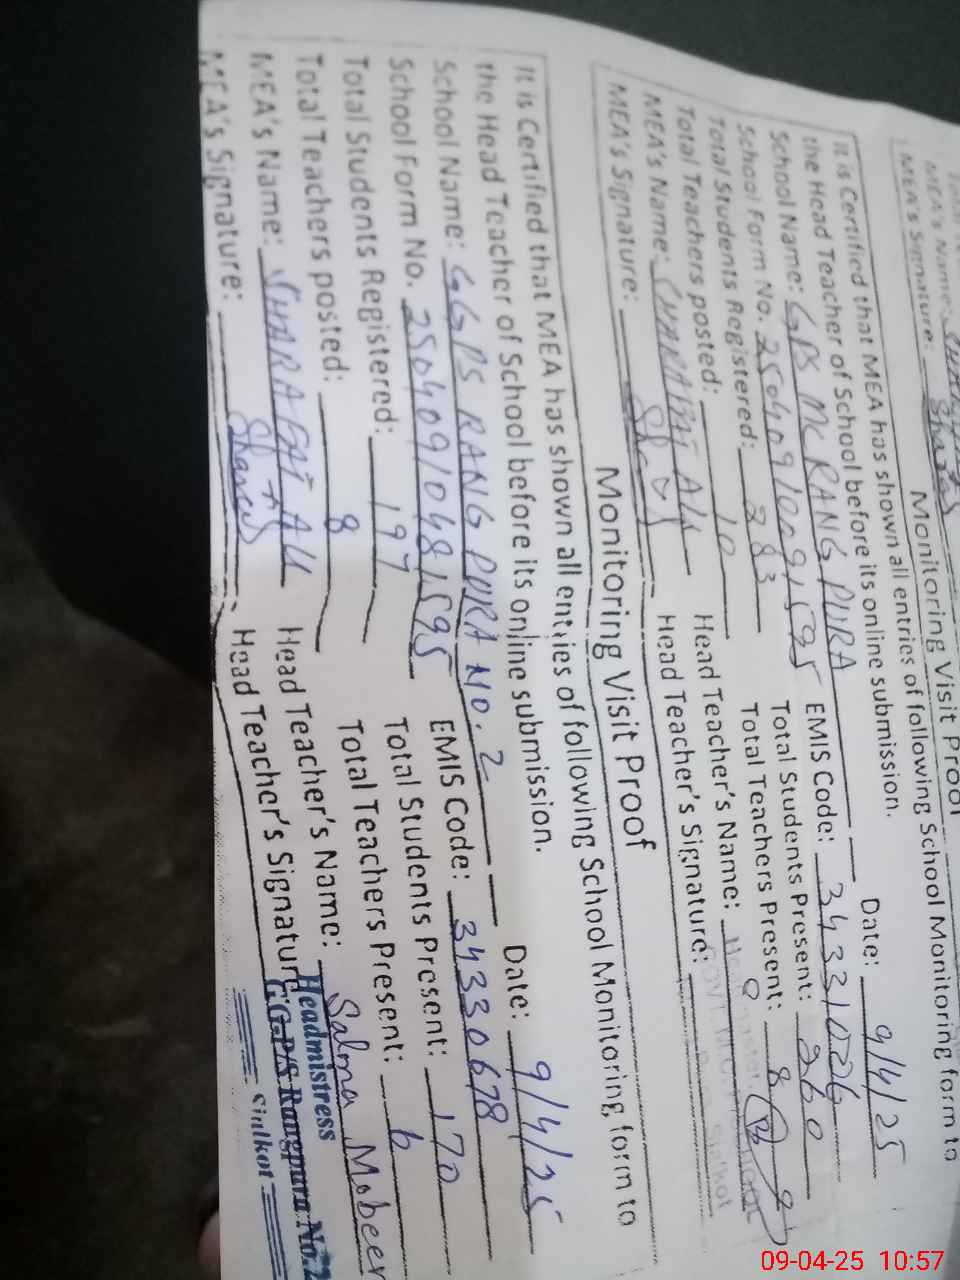 MEA's Name:
MEA's Signature:
Monitoring Visit Proof
It is Certified that MEA has shown all entries of following School Monitoring form to
the Head Teacher of School before its online submission. Date: 9/4/25
School Name: GPS MC RANG PURA EMIS Code: 34331026
School Form No. Total Students Present: 260
Total Students Registered: 283 Total Teachers Present: 8
Total Teachers posted: 10 Head Teacher's Name:
MEA's Name: ALI Head Teacher's Signature:
MEA's Signature:
Monitoring Visit Proof
It is Certified that MEA has shown all entries of following School Monitoring form to
the Head Teacher of School before its online submission. Date: 9/4/25
School Name: GGPS RANG PURA NO. 2 EMIS Code: 34330678
School Form No. 250409/0481595 Total Students Present: 170
Total Students Registered: 197 Total Teachers Present: 6
Total Teachers posted: 8 Head Teacher's Name: Salma Mobeen
MEA's Name: ALI Head Teacher's Signature:
MEA's Signature:
Headmistress
G.G.P/S Rangpura No.2
Sialkot
09-04-25 10:57